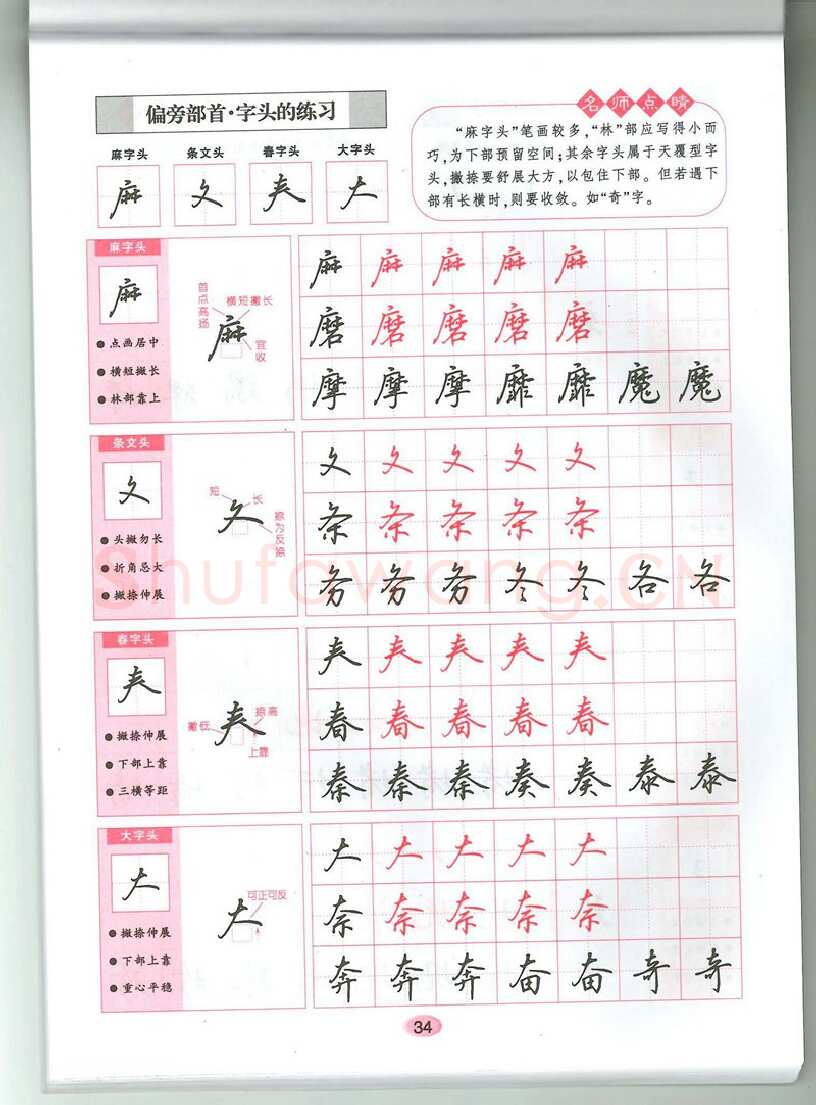 偏旁部首·字头的练习
名师点睛
“麻字头”笔画较多,“林”部应写得小而
巧,为下部预留空间;其余字头属于天覆型字
头,撇捺要舒展大方,以包住下部。但若遇下
部有长横时,则要收敛。如“奇”字。
麻字头 条文头 春字头 大字头
麻 夂 𡗗 大
麻字头
麻
点画居中
横短撇长
林部靠上
首点高扬
横短撇长
麻
宜收
麻 麻 麻 麻 麻
磨 磨 磨 磨 磨
摩 摩 摩 靡 靡 魔 魔
条文头
夂
头撇勿长
折角忌大
撇捺伸展
短
长
夂
捺为反捺
夂 夂 夂 夂 夂
条 条 条 条 条
务 务 务 冬 冬 各 各
春字头
𡗗
撇捺伸展
下部上靠
三横等距
撇低
捺高
𡗗
上靠
𡗗 𡗗 𡗗 𡗗 𡗗
春 春 春 春 春
秦 秦 秦 奏 奏 泰 泰
大字头
大
撇捺伸展
下部上靠
重心平稳
可正可反
大
大 大 大 大 大
奈 奈 奈 奈 奈
奔 奔 奔 奋 奋 奇 奇
34
Shufawang.CN